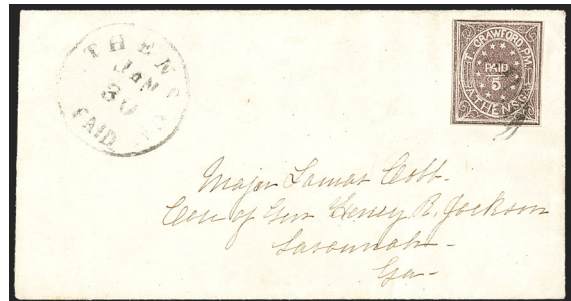 THENS
JAN
30
PAID
T. CRAWFORD, P.M.
PAID
5
ATHENS, GA.
Major Lamar Cobb-
Care of Gen Henry R. Jackson
Savannah-
Ga-